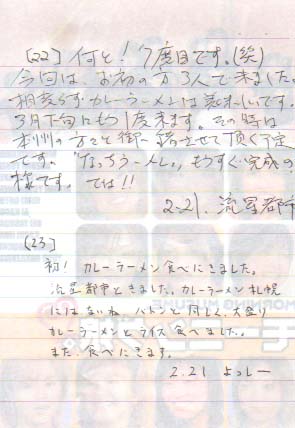 [22] 何と! 7度目です。(笑)
今回は、お初の方3人で来ました。
相変らずカレーラーメンは美味しいです。
3月下旬にもう1度来ます。その時は
本州の方々と御一緒させて頂く予定
です。"なっちうーん"もうすぐ完成の
様です。 では!!
2.21. 流星都市
[23]
初! カレーラーメン食べにきました。
流星都市ときました。カレーラーメン札幌
にはないね。ハトンと同じく、大盛り
カレーラーメンとライス食べました。
また、食べにきます。
2.21 よっしー
MORNING MUSUME
モーニング